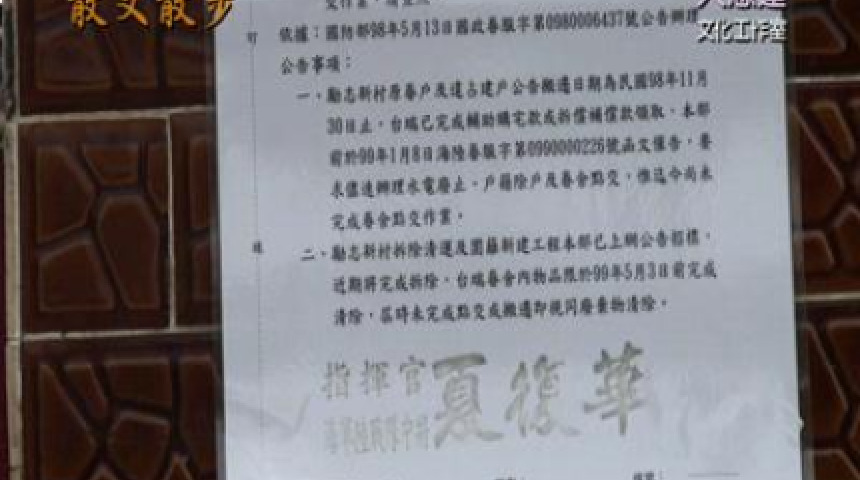 散文散步
文化工作室
依據：國防部98年5月13日國政眷服字第0980006437號公告辦理
公告事項：
一、勵志新村原眷戶及違占建戶公告搬遷日期為民國98年11月
30日止，台端已完成輔助購宅款或拆償補償款領取，本部
前於99年1月8日海陸眷服字第0990000226號函文催告，要
求儘速辦理水電廢止、戶籍除戶及眷舍點交，惟迄今尚未
完成眷舍點交作業。
二、勵志新村拆除清運及圍籬新建工程本部已上網公告招標，
近期將完成拆除，台端眷舍內物品限於99年5月3日前完成
清除，屆時未完成點交或搬遷即視同廢棄物清除。
訂
線
指揮官
夏復華